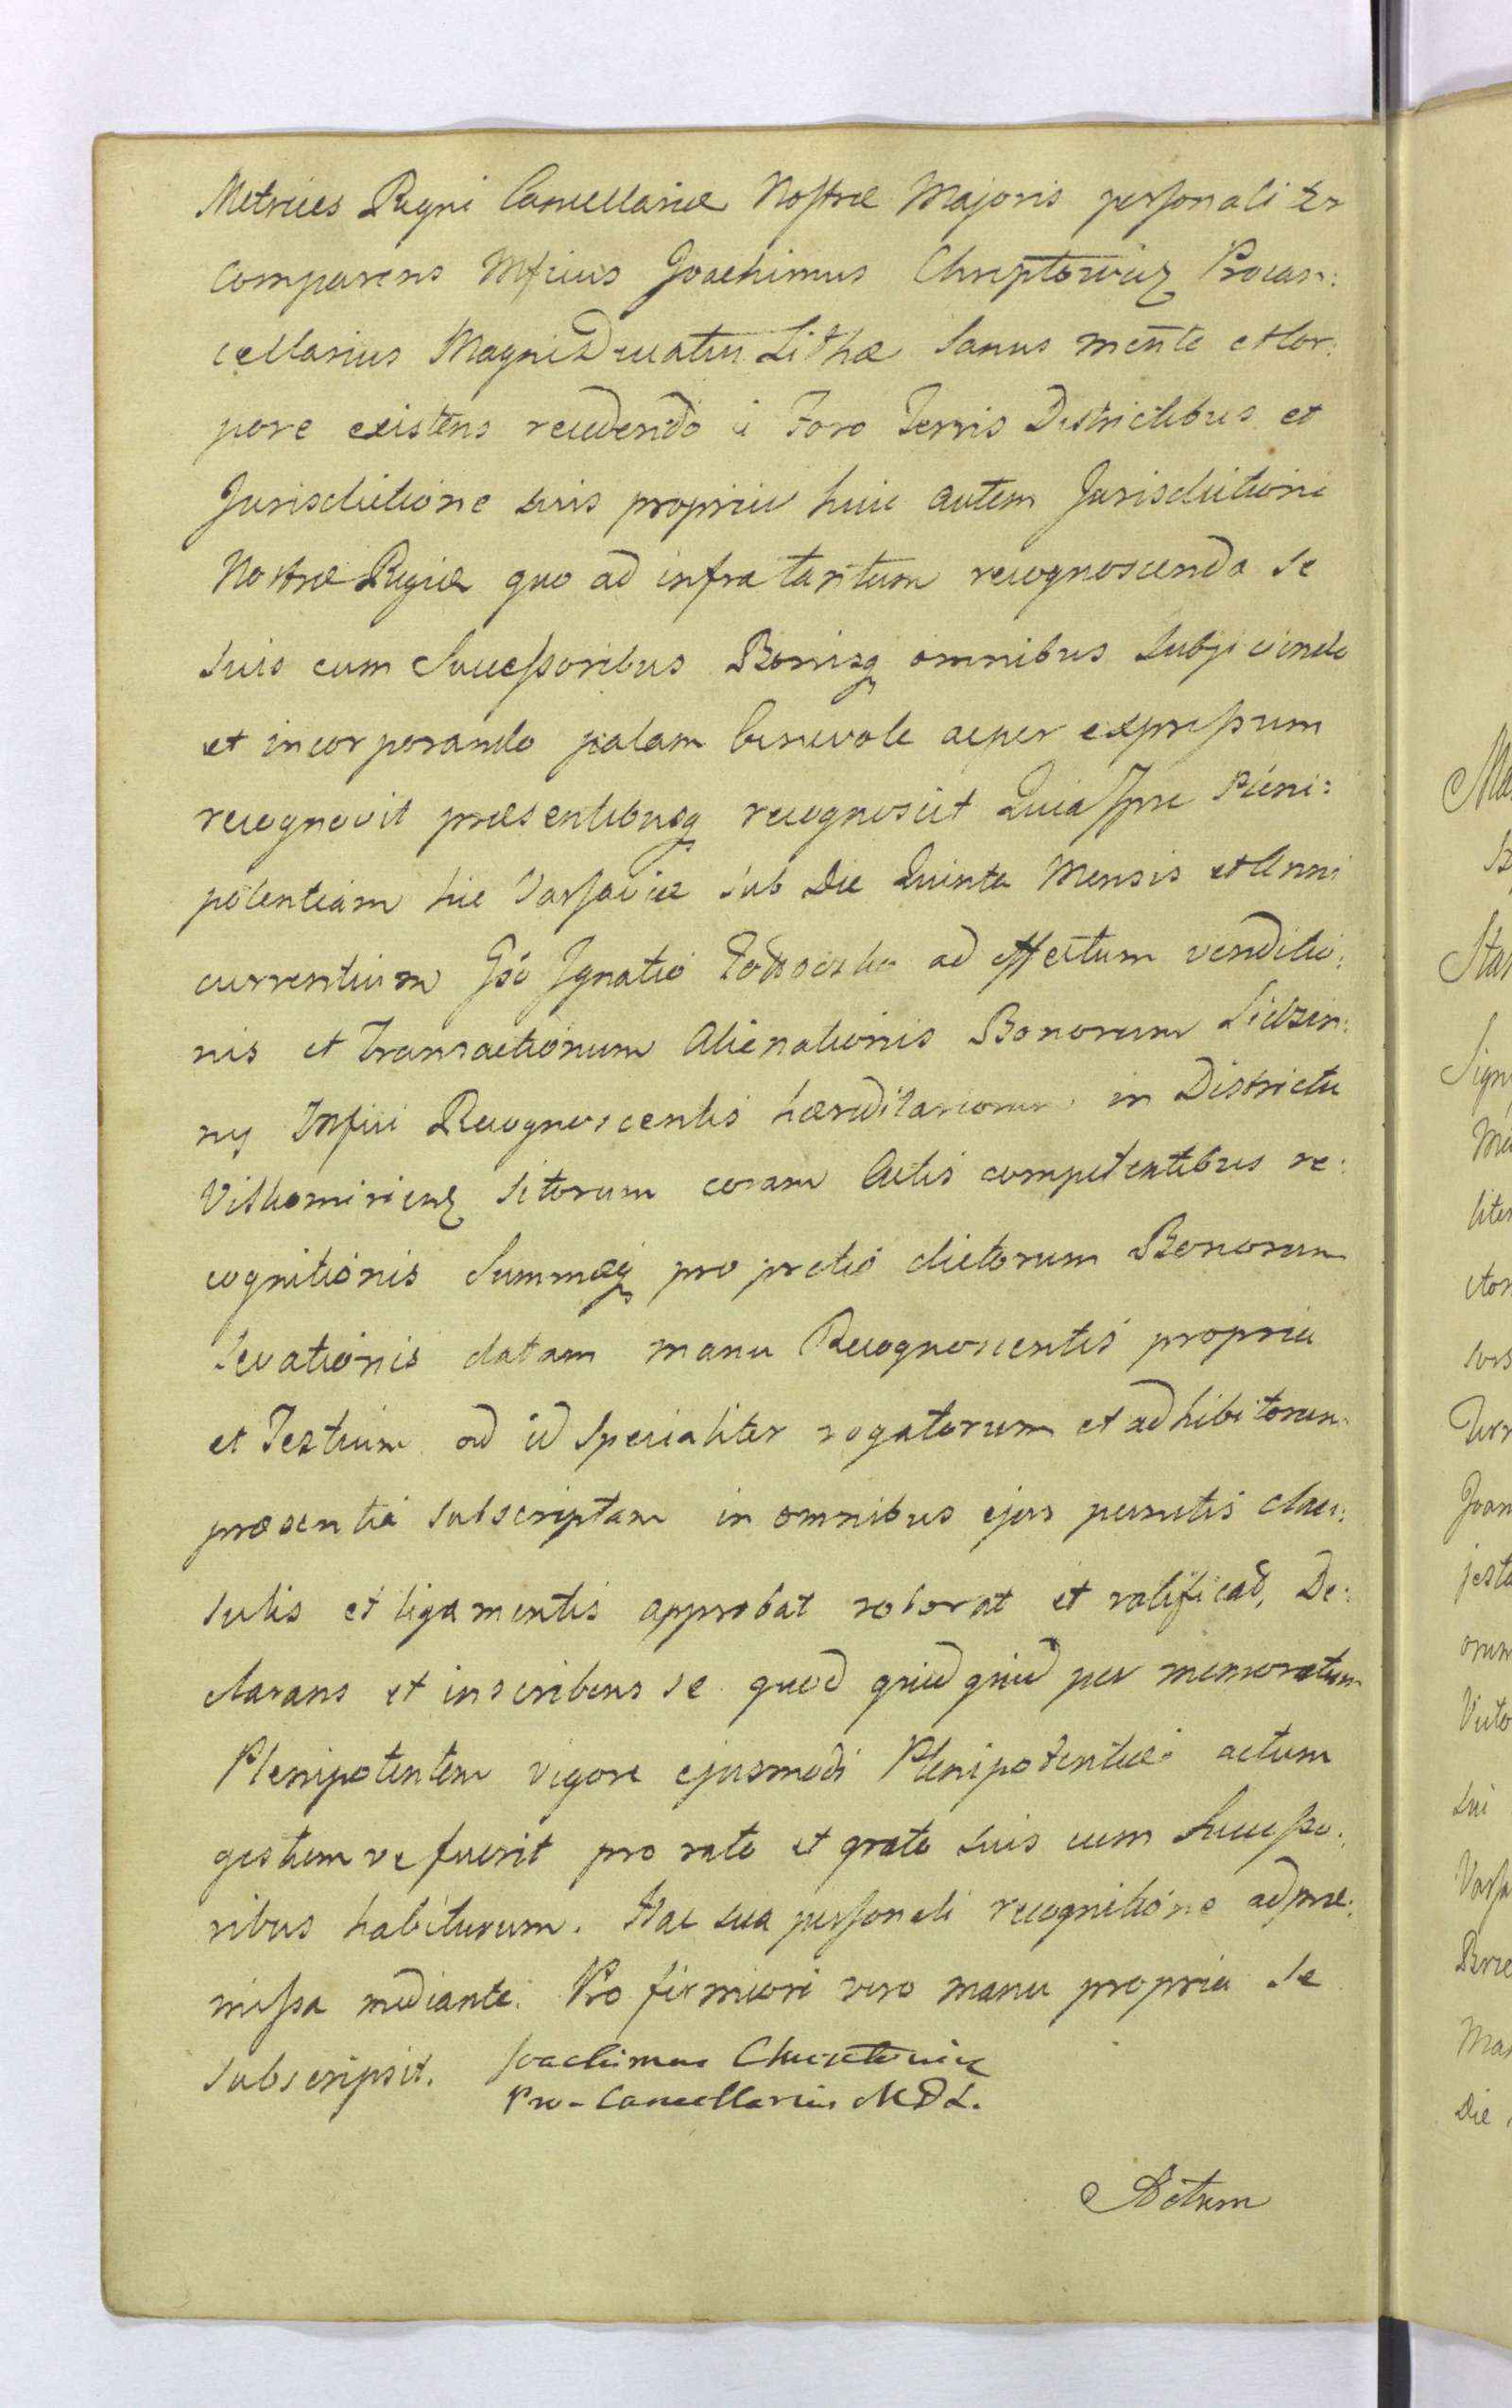 Metrices Regni Cancellariæ Nostræ Majoris personaliter
comparens Mficus Joachimus Chreptowicz Procan:
cellarius Magni Ducatus Lithæ Sanus mente et Cor:
pore existens recedendo à Foro Terris Districtibus et
Jurisdictione suis propriis huic autem Jurisdictioni
Nostræ Regiæ quo ad infra tantum recognoscenda se
suis cum Successoribus Bonisq omnibus subjiciendo
et incorporando palam benevole ac per expressum
recognovit præsentibusq recognoscit Quia Ipse Pleni:
potentiam hic Varsaviæ sub Die Quinta Mensis et Anni
currentium Gso Ignatio ad effectum venditio:
nis et Transactionum Alienationis Bonorum
Mfici Recognoscentis hæreditariorum in Districtu
Vilkomiriens sitorum coram Actis competentibus re:
cognitionis Summæq pro pretio dictorum Bonorum
levationis datam manu Recognoscentis propria
et Testium ad id specialiter rogatorum et adhibitorum
præsentia subscriptam in omnibus ejus punctis clau:
sulis et ligamentis approbat roborat et ratificat, De:
clarans et inscribens se quod quid quid per memoratum
Plenipotentem vigore ejusmodi Plenipotentiæ actum
gestum ve fuerit pro rato et grato suis cum Successo:
ribus habiturum. Hac sua personali recognitione ad præ:
missa mediante. Pro firmiori vero manu propria se
subscripsit. Joachimus Chreptowicz
Pro-Cancellarius M D L.
Actum